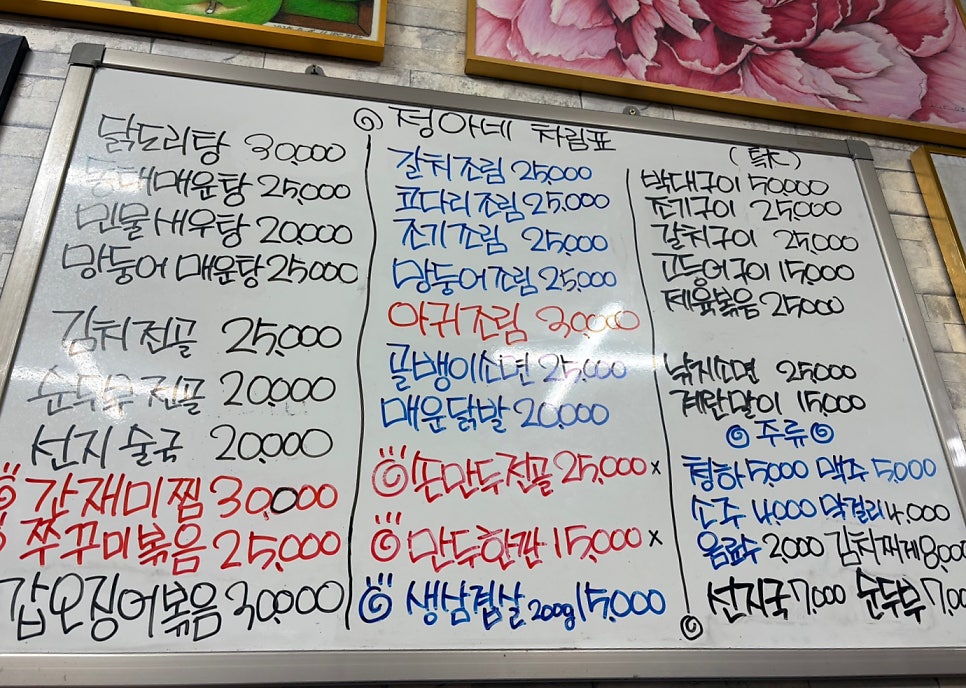 정아네 차림표
닭도리탕 30,000
동태매운탕 25,000
민물새우탕 20,000
망둥어 매운탕 25,000
김치전골 25,000
순두부전골 20,000
선지술국 20,000
간재미찜 30,000
쭈꾸미볶음 25,000
갑오징어볶음 30,000
갈치조림 25,000
코다리조림 25,000
조기조림 25,000
망둥어조림 25,000
아귀조림 30,000
골뱅이소면 25,000
매운닭발 20,000
손만두전골 25,000 x
만두한판 15,000 x
생삼겹살 200g 15,000
박대구이 50000
조기구이 25,000
갈치구이 25,000
고등어구이 15,000
제육볶음 25,000
낙지소면 25,000
계란말이 15,000
주류
청하 5,000 맥주 5,000
소주 4,000 막걸리 4,000
음료수 2,000 김치찌게 8,000
선지국 7,000 순두부 7,0